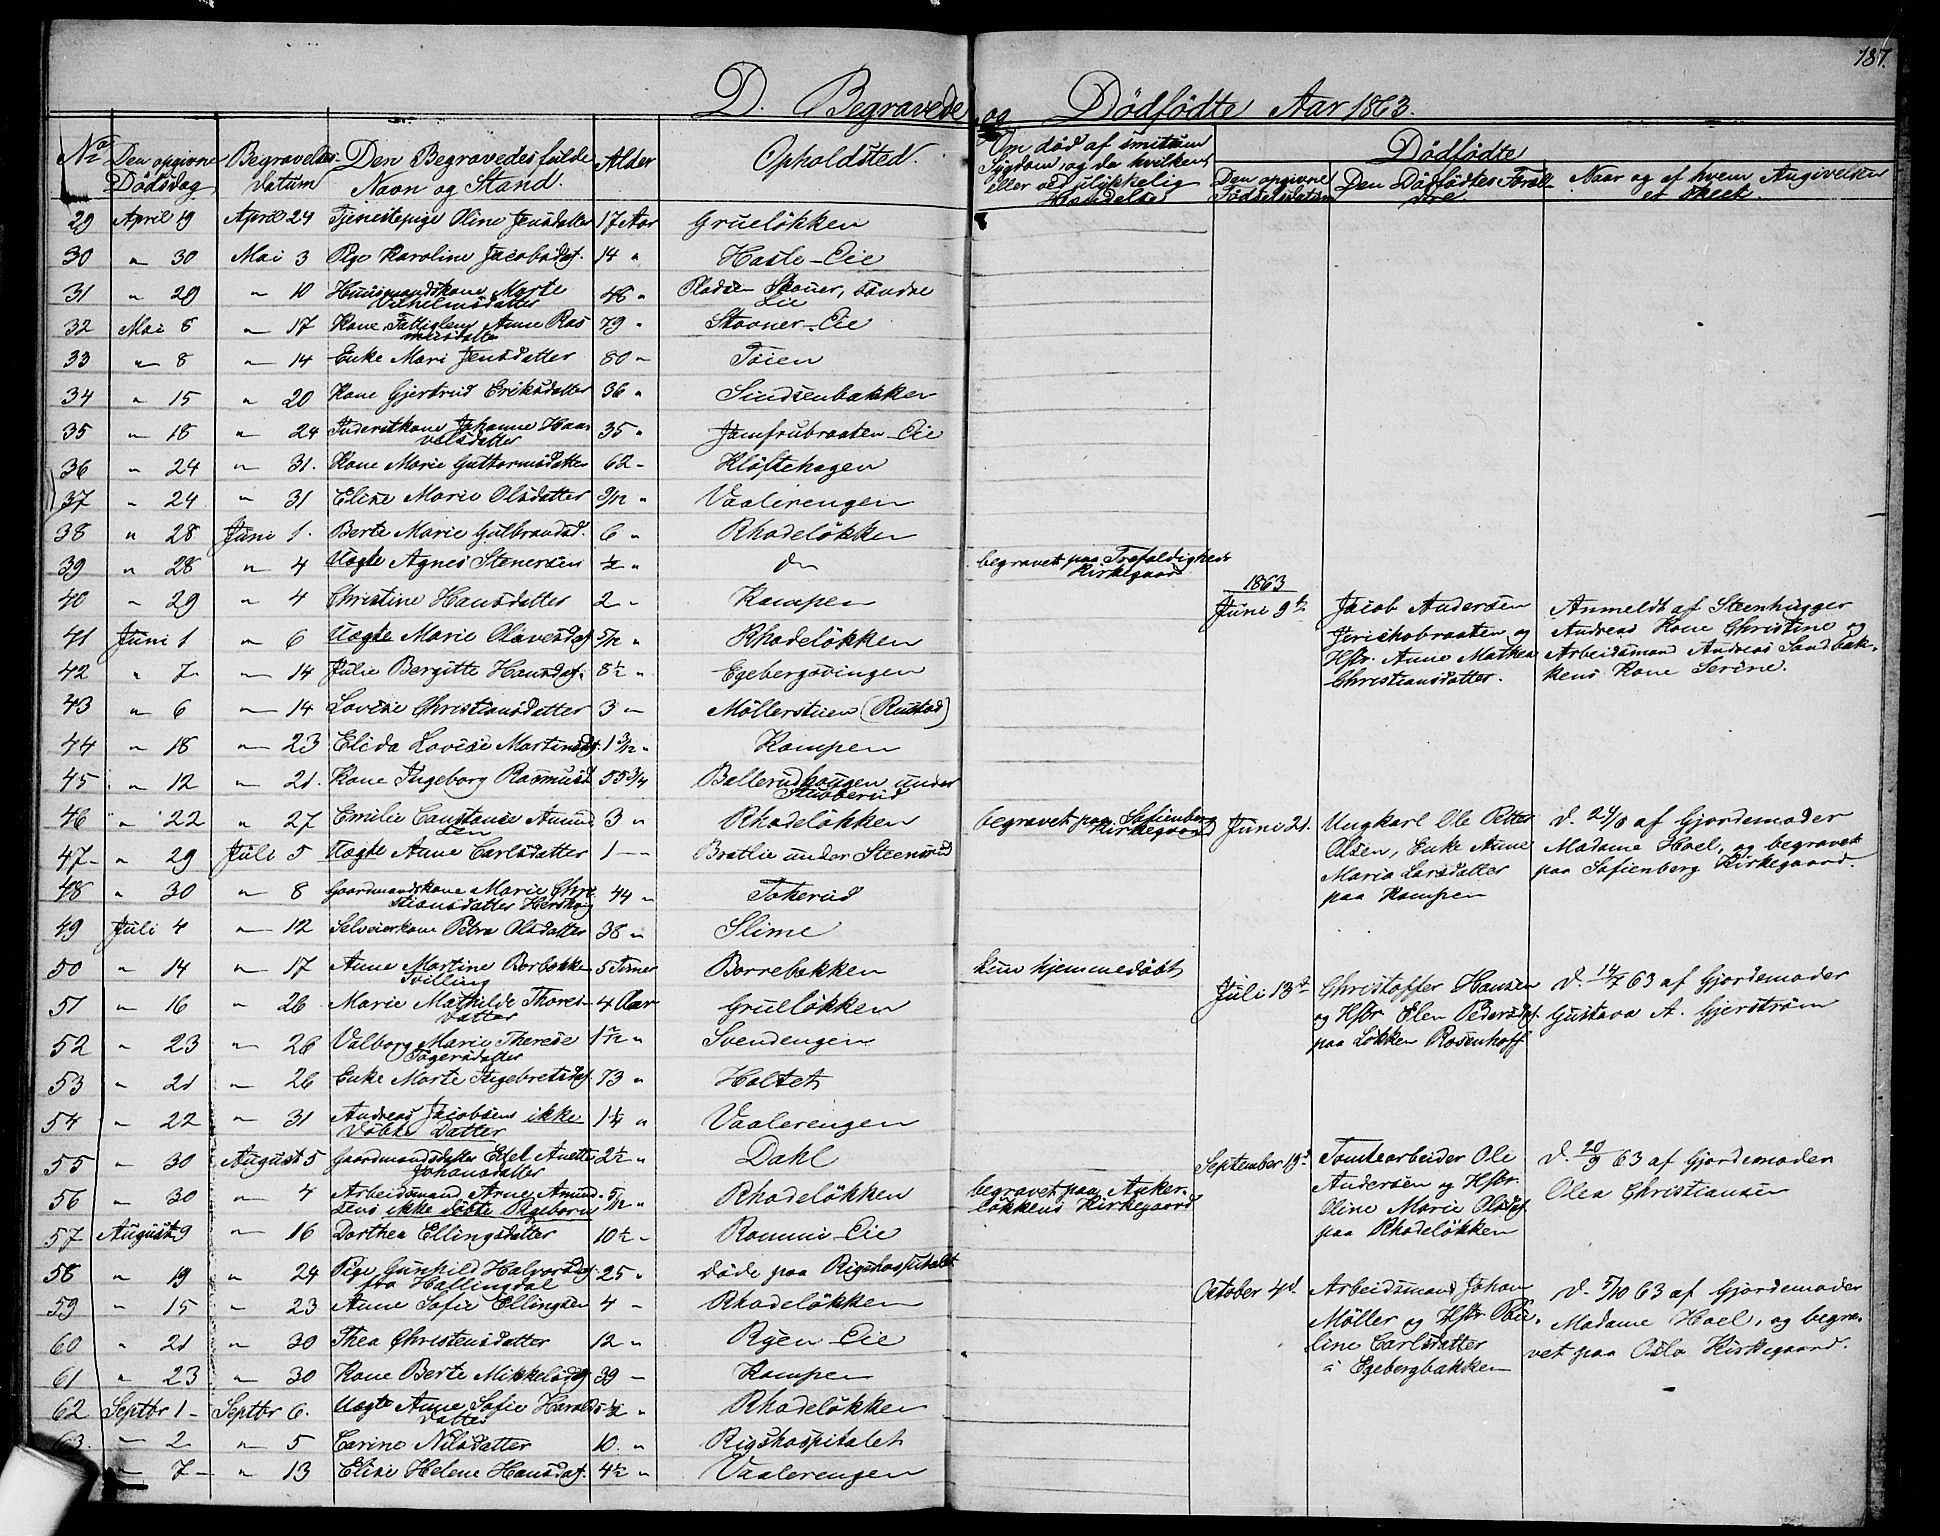 187.
D. Begravede og Dödfödte Aar 1863.
No Den opgivne Dödsdag Begravelses-Datum Den Begravedes fulde Navn og Stand. Alder Opholdsted.
Om död af smitsom Sygdom, og da hvilken, eller ved ulykkelig Hændelse
Dödfödte
Den opgivne Födselsdatum Den Dödfödtes Foræl-dre Naar og af hvem Angivelsen er skeet.
29 April 19 April 24 Tjenestepige Oline Jensdatter 17 Aar Grueløkken
30 " 30 Mai 3 Pge Karoline Jacobsdat. 14 " Hasle-Eie
31 " 29 " 10 Huusmandskone Marte
Vilhelmsdatter 46 " Pladsen Skouer, Söndre
Eie
32 Mai 8 " 17 Kone Fattiglem Anne Ras
musdatter 79 " Stovner-Eie
33 " 8 " 14 Enke Mari Jensdatter 80 " Töien
34 " 15 " 20 Kone Gjertrud Eriksdatter 36 " Sindsenbakken
35 " 18 " 24 Inderstkone Johanne Haa-
valsdatter 35 " Jomfrubraaten-Eie
36 " 24 " 31. Kone Marie Guttormsdatter 62 " Kløftehagen
37 " 24 " 31 Elise Marie Olsdatter 9/12 " Vaalerengen
38 " 28 Juni 1. Berte Marie Gulbrandsd. 6 " Rhodeløkken
39 " 28 " 4 Uægte Agnes Stenersen ½ " do begravet paa Trefoldigheds
Kirkegaard
40 " 29 " 4 Christine Hansdatter 2 " Kampen
41 Juni 1 " 6 Uægte Marie Olavesdat. 5/12 " Rhodeløkken
42 " 7 " 14 Julie Bergitte Hansdat. 8½ " Egebergsvingen
43 " 6 " 14 Lovise Christiansdatter 3 " Möllerstuen (Rustad)
44 " 18 " 23 Elida Lovise Martinsdat. 1 3/12 " Kampen
45 " 12 " 21. Kone Ingeborg Rasmusd. 55 3/4 Ballerudhaugen under
Stubberud
46 " 22 " 27 Emilie Constance Amund
sen 3 " Rhodeløkken begravet paa Sofienberg
Kirkegaard
47 " 29 Juli 5 Uægte Anne Carlsdatter 1 " Bratlie under Steensrud
48 " 30 " 8 Gaardmandskone Marie Chri
stiansdatter 44 " Tokerud
49 Juli 4 " 12 Selveierkone Petra Olsdatter 38 " Slime
50 " 14 " 17 Anne Martine Borbakke
Tvilling 5 Timer Borrebækken kun hjemmedöbt
51 " 16 " 26. Marie Mathilde Thores-
datter 4 Aar Grueløkken
52 " 23 " 26 Valborg Marie Therese
1 7/12 " Svendengen
53 " 21 " 26 Enke Marte Ingebretsdat. 73 " Holtet
54 " 22 " 31 Andreas Jacobsens ikke
döbte Datter 1¼ " Vaalerengen
55 " 30 August 5 Gaardmandsdatter Anette
Johansdatter 2½ " Dahl
56 " 30 " 4 Arbeidsmand Arne Amund-
sens ikke döbte Pigebarn 5/12 " Rhodeløkken begravet paa Anker-
løkkens Kirkegaard
57 August 9 " 16 Dorthea Ellingsdatter 10½ " Rommi-Eie
58 " 19 " 24 Pige Gunhild Halvorsdat.
fra Hallingdal 25 " Döde paa Rigshospitalet
59 " 15 " 23 Anne Sofie Ellingsen 4 " Rhodeløkken
60 " 21 " 30 Thea Christensdatter 12 " Ryen-Eie
61 " 23 " 30 Kone Berte Mikkelsdat. 39 " Kampen
62 Septbr 1 Septbr 6. Uægte Anne Sofie Harolds-
datter ½ " Rhodeløkken
63. " 2 " 5 Carine Nilsdatter 10. " Rigshospitalet
" 7 " 13 Elise Helene Hansdat. 4½ " Vaalerengen
1863
Juni 9de Jacob Andersen
Jerichobraaten og
Hstr. Anne Mathea
Christiansdatter.
Anmeldt af Steenhugger
Andreas Kone Christine og
Arbeidsmand Andreas Sandbak-
kens Kone Serine.
Juni 21. Ungkarl Ole Petter
Olsen, Enke Anne
Maria Larsdatter
paa Kampen
D. 24/6 af Gjordemoder
Madame Hoel, og begravet
paa Sofienberg Kirkegaard.
Juli 13de Christoffer Hansen
og Hstr. Elen Pedersdat.
paa Løkken Rosenhoff
D. 14/7 63 af Gjordemoder
Gustava A. Gjerström
September 19d Tomtearbeider Ole
Andersen og Hstr.
Oline Marie Olsdat.
paa Rhodeløkken
D. 20/9 63 af Gjordemoder
Olea Christiansen
October 4d. Arbeidsmand Johan
Möller og Hstr Pau-
line Carlsdatter
i Egebergbakken
D. 5/10 63 af Gjordemoder
Madame Hoel, og begra-
vet paa Oslo Kirkegaard.